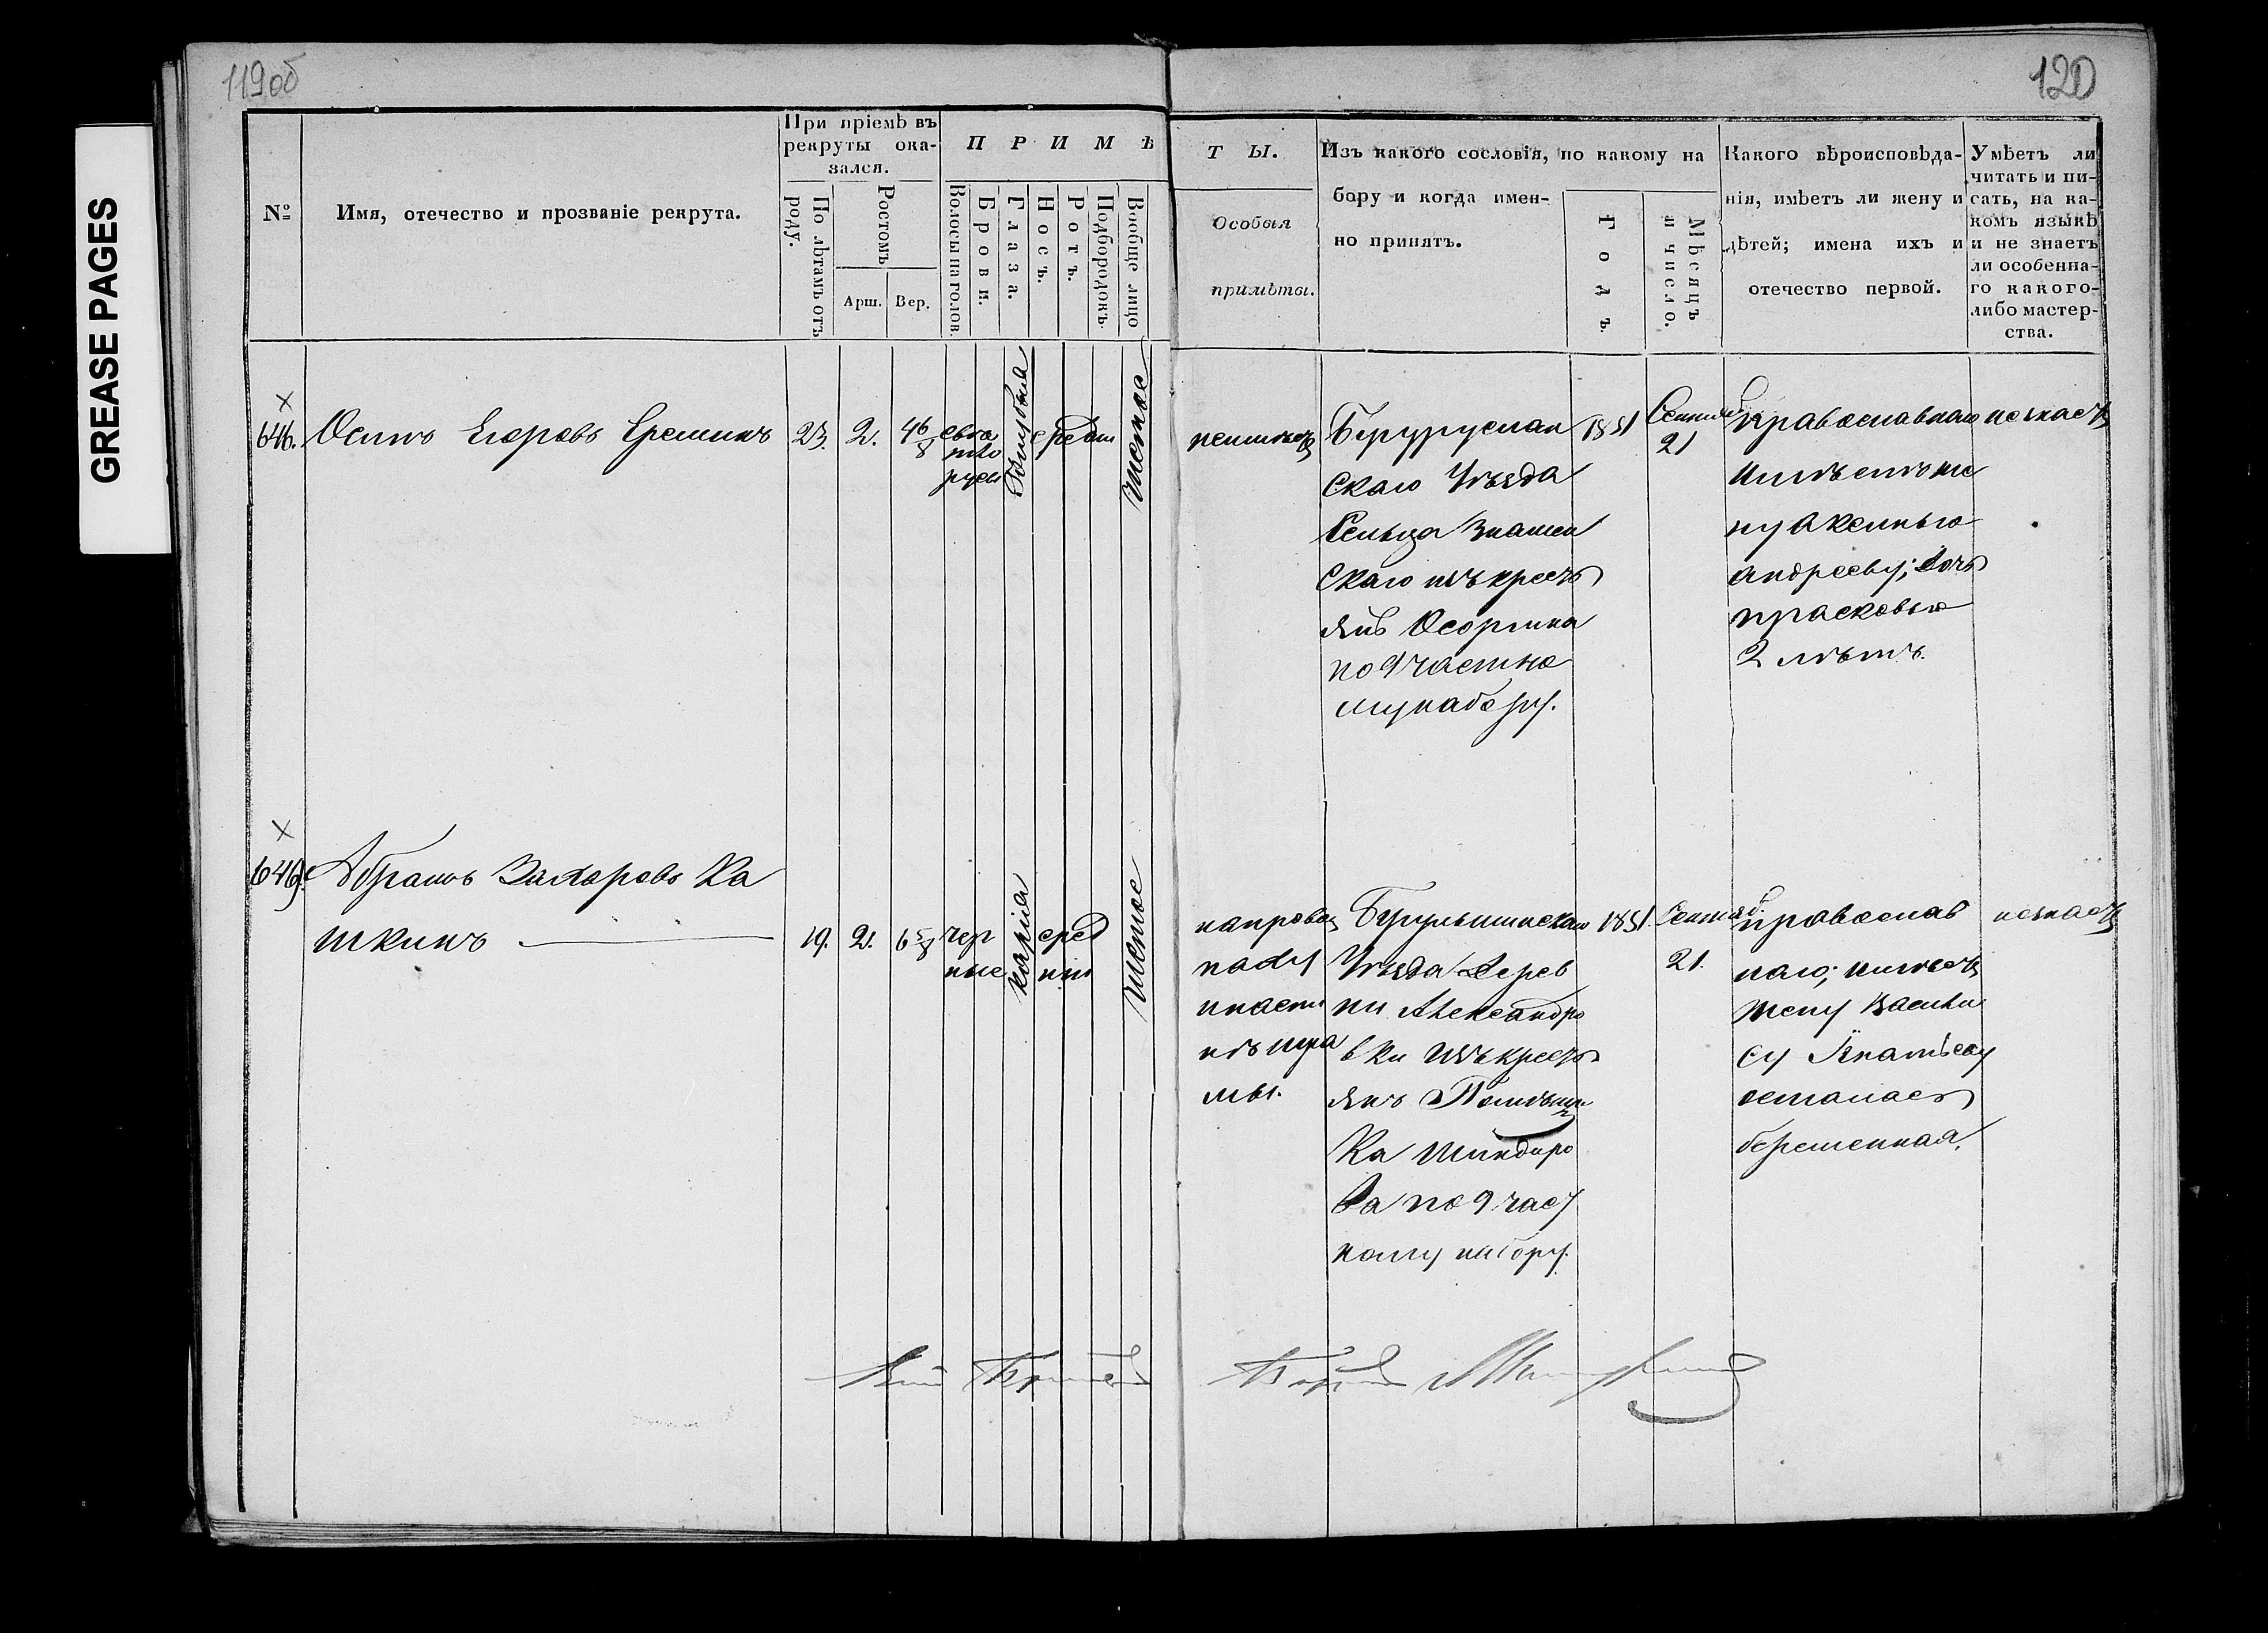 119об
120
GREASE PAGES
№
Имя, отечество и прозваніе рекрута.
При пріемѣ въ
рекруты ока-
зался.
По лѣтамъ отъ
роду.
Ростомъ
Арш. Вер.
ПРИМѢ
Волосы на голов.
Брови.
Глаза.
Носъ.
Ротъ.
Подбородокъ.
Вообще лицо
ТЫ.
Особыя
примѣты.
Изъ какого сословія, по какому на
бору и когда имен-
но принятъ.
Годъ.
Мѣсяцъ
и число.
Какого вѣроисповѣда-
нія, имѣетъ ли жену и
дѣтей; имена ихъ и
отечество первой.
Умѣетъ ли
читать и пи-
сать, на ка-
комъ языкѣ
и не знаетъ
ли особенна-
го какого-
либо мастер-
ства.
646.
Осипъ Егоровъ Ереминъ
23.
2.
4 6/8
свѣтло
русы
голубыя
средни
чистое
неимѣетъ
Бугуруслан
скаго Уѣзда
Сельца Знамен
скаго изъ кресть
янъ Осоргина
по 9 частно
му набору.
1851
Сентяб
21
православнаго
имѣетъ же
ну Аксинью
Андрееву; дочь
Прасковью
2 лѣтъ.
незнаетъ
Абрамъ Захаровъ Ка
шкинъ
19.
2.
6 5/8
чер
ные
карія
сред
ни
чистое
направой
паху
Бугульминскаго
Уѣзда Дерев
ни Александро
вки изъ кресть
янъ Помѣщи
ка
по 9 част
ному набору.
1851.
Сентяб
21.
православ
наго; имѣетъ
жену Васили
су Игнатьеву
осталась
беременная.
незнаетъ